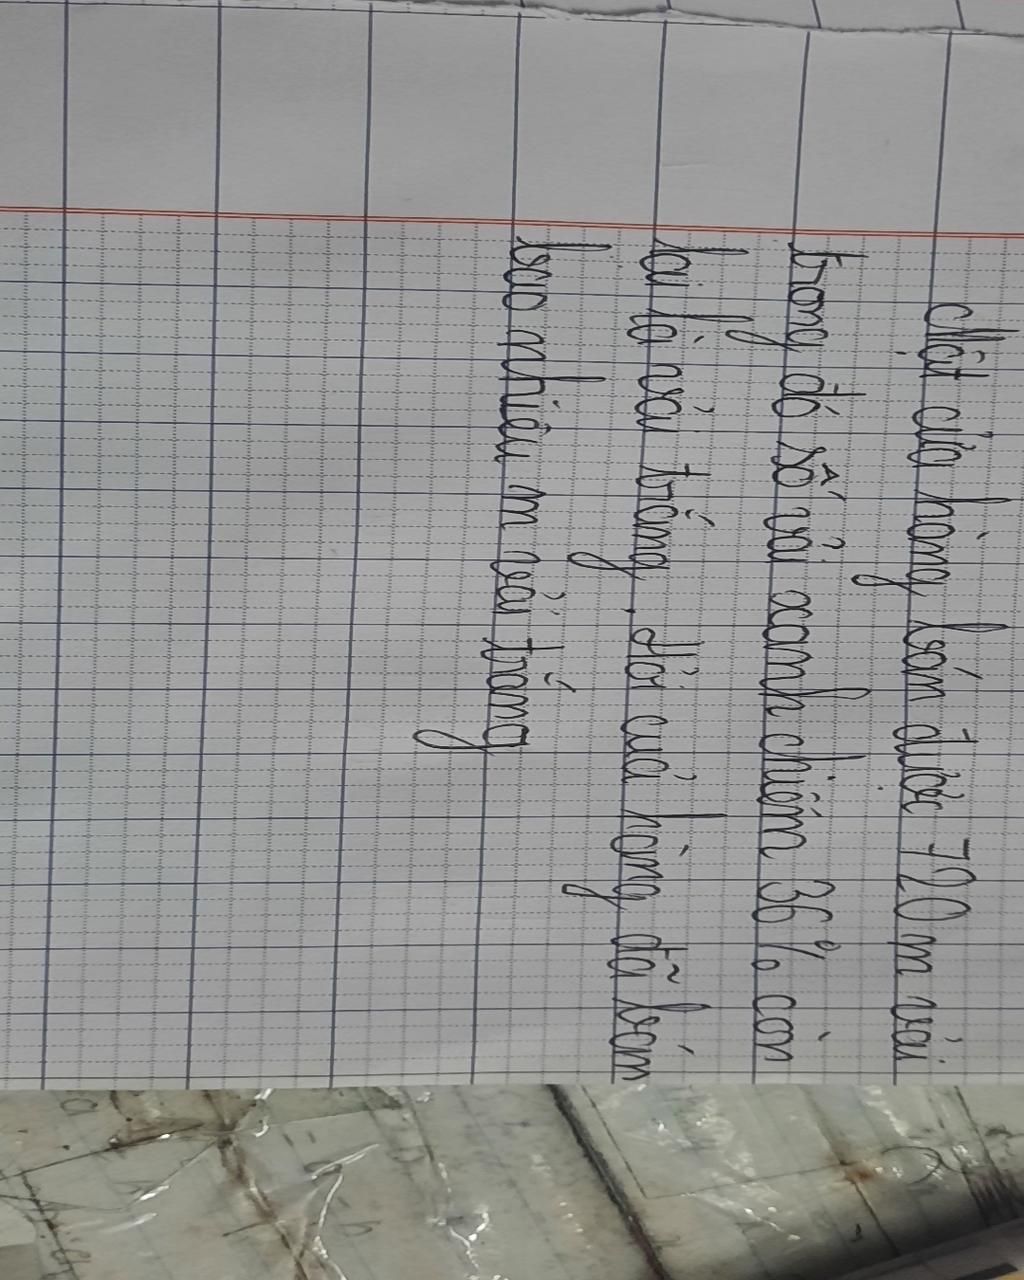 Một cửa hàng bán được 720 m vải
trong đó số vải xanh chiếm 36% còn
lại là vải trắng. Hỏi cửa hàng đã bán
bao nhiêu m vải trắng